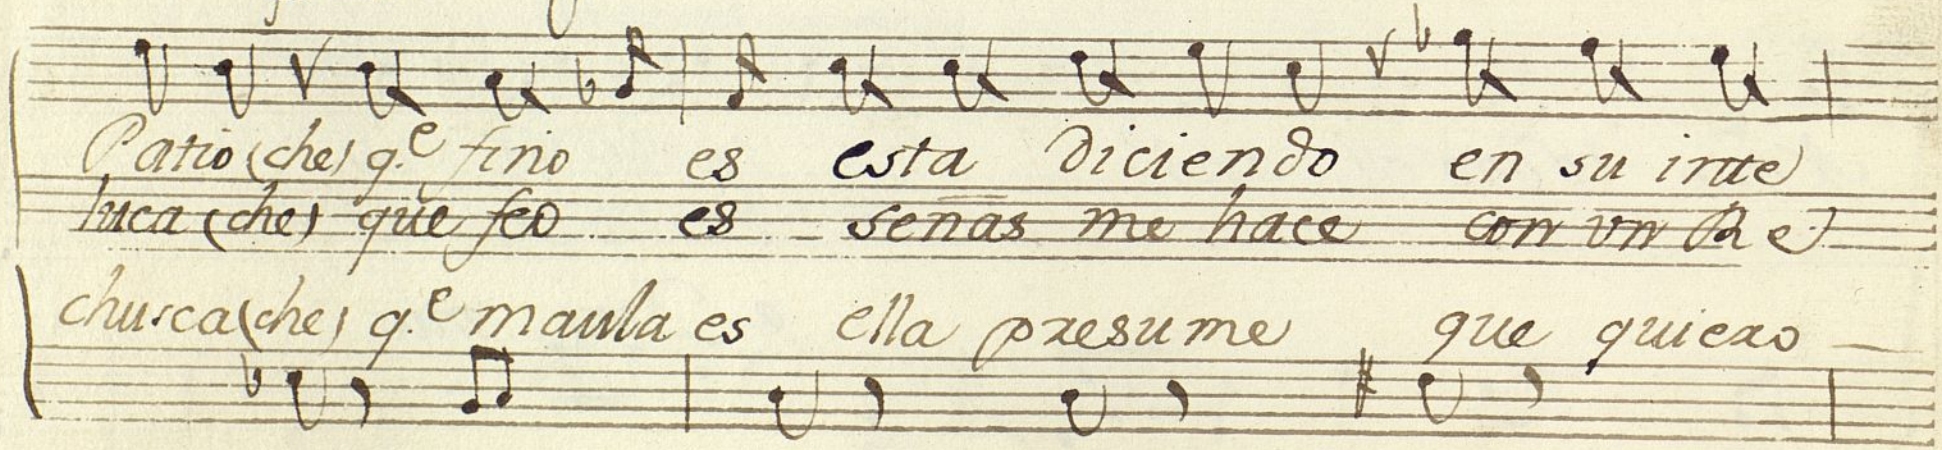 Patio (che) q.e fino es esta diciendo en su inte
luca (che) que feo es señas me hace con vn Re
chusca (che) q.e maula es ella presume que quiero